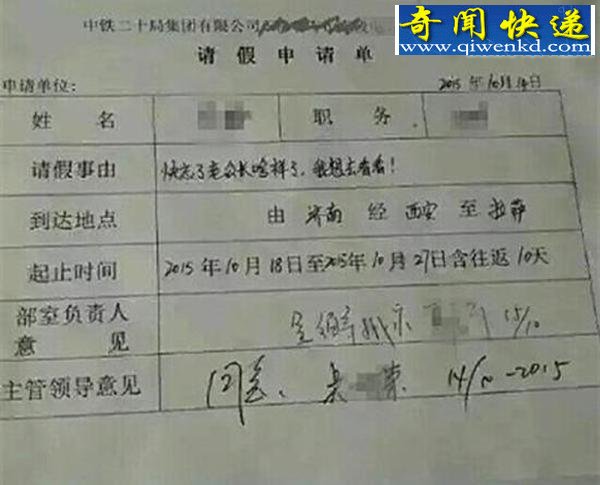 中铁二十局集团有限公司
奇闻快递
www.qiwenkd.com
请假申请单
申请单位：
2015年10月14日
姓名 职务
请假事由 快忘了老公长啥样了，我想去看看！
到达地点 由 济南 经 西安 至 拉萨
起止时间 2015年10月18日至2015年10月27日含往返10天
部室负责人
意见 呈领导批示 15/10
主管领导意见 同意. 14/10-2015